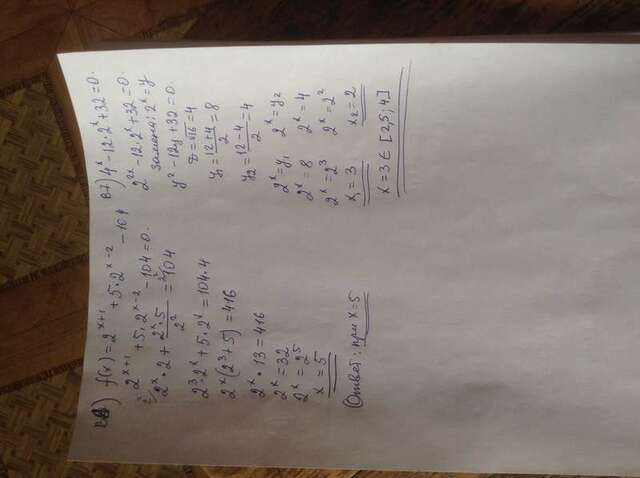 f(x) = 2^{x+1} + 5·2^{x-2} - 104
2^{x+1} + 5·2^{x-2} - 104 = 0.
2^x·2 + \frac{2^x·5}{2^2} = 104
2^3·2^x + 5·2^x = 104·4
2^x(2^3+5) = 416
2^x·13 = 416
2^x = 32
2^x = 2^5
x = 5
(Ответ: при x=5
B7) 4^x - 12·2^x + 32 = 0.
2^{2x} - 12·2^x + 32 = 0.
Замена: 2^x = y
y^2 - 12y + 32 = 0.
D = √16 = 4
y_1 = \frac{12+4}{2} = 8
y_2 = \frac{12-4}{2} = 4
2^x = y_1 2^x = y_2
2^x = 8 2^x = 4
2^x = 2^3 2^x = 2^2
x_1 = 3 x_2 = 2
x = 3 ∈ [2,5; 4]